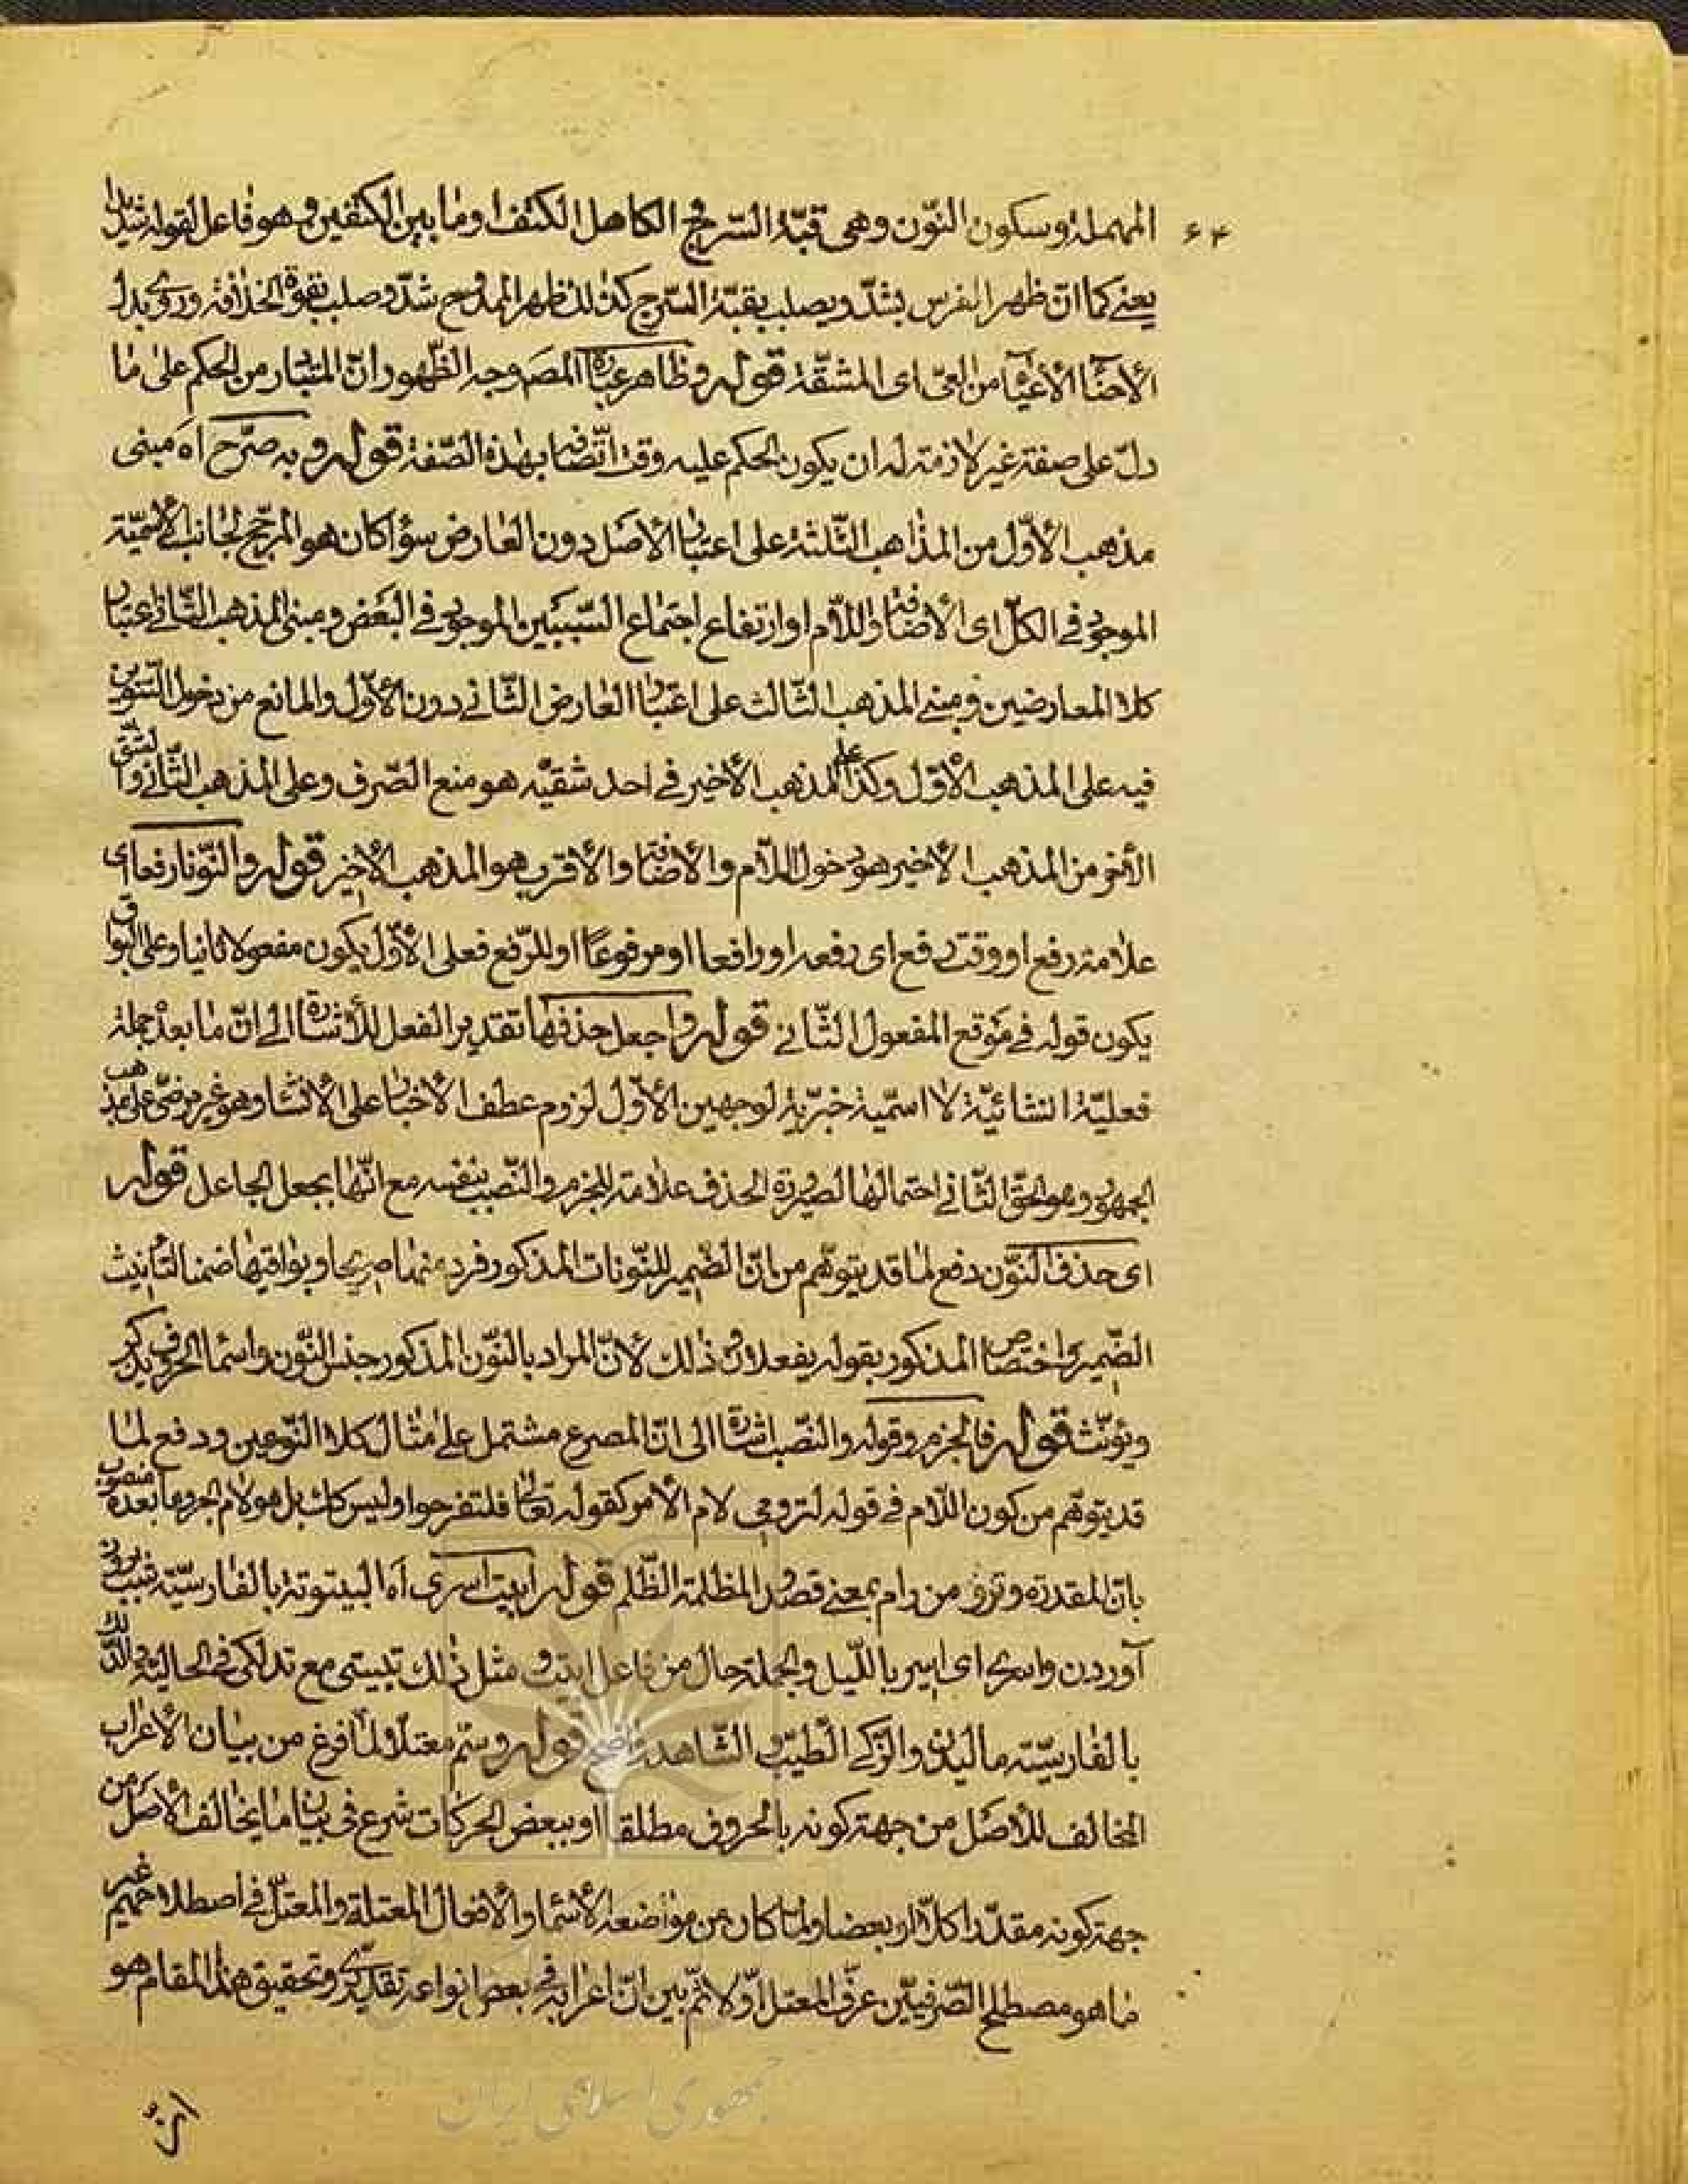 ۶۴
المهملة وسكون النّون وهى قبّة السّرج و الكاهل الكتف او ما بين الكتفين وهو فاعل لقوله شديدا
يعنے كما انّ ظهر الفرس يشدّ ويصلب بقبّة السّرج كذلك ظهر الممدوح شدّ وصلب بقوّة الخلافة وروى بدل
الأحناء الأعباء من العىّ اى المشقّة قوله وظاهر عبارة المصَ وجه الظّهور انّ المتبادر من الحكم على ما
دلّ على صفة غير لازمة له ان يكون الحكم عليه وقت اتّصافه بهذه الصّفة قوله وبه صرّح اه مبنى
مذهب الأوّل من المذاهب الثّلثة على اعتبار الأصل دون العارض سواء كان هو المرجّح لجانب الأسميّة
الموجود فى الكلّ اى الأضافة واللّام او ارتفاع اجتماع السّببين الموجود فى البعض ومبنى المذهب الثّانى اعتبار
كلا المعارضين ومبنى المذهب الثّالث على اعتبار العارض الثّانے دون الأوّل والمانع من دخول التّنوين
فيه على المذهب الأوّل وكذا على المذهب الأخير فى احد شقيّه هو منع الصّرف وعلى المذهب الثّانى والشّق
الأخر من المذهب الأخير هو دخول اللّام والأضافة والأقرب هو المذهب الأخير قوله والنّونا رفعا اى
علامة رفع او وقت رفع اى رفعه او رافعا او مرفوعًا او للرّفع فعلى الأوّل يكون مفعولا ثانيا وعلى البواقى
يكون قوله فى موقع المفعول الثّانے قوله واجعل حذفها تقدير الفعل للأشارة الى انّ ما بعده جملة
فعليّة انشائيّة لا اسميّة خبريّة لوجهين الأوّل لزوم عطف الأخبار على الأنشاء وهو غير مرضىّ على مذهب
الجمهور وهو الحقّ الثّانى احتمالها لصيرورة الحذف علامة للجزم والنّصب بنفسه مع انّها بجعل الجاعل قوله
اى حذف النّون دفع لما قد يتوهّم من انّ الضّمير للنّونات المذكور فرد منها صريحا وبواقيها ضمنا لتأنيث
الضّمير واختصاص المذكور بقوله يفعلان و ذلك لأنّ المراد بالنّون المذكور جنس النّون واسماء الحروف يذكّر
ويؤنّث قوله فالجزم وقوله والنّصب اشارة الى انّ المصرع مشتمل على مثال كلا النّوعين ودفع لما
قد يتوهّم من كون اللّام فى قوله لترومى لام الأمر كقوله تعالى فلتفرحوا وليس كذلك بل هو لام الجر وما بعده منصوب
بان المقدرة وتروم من رام بمعنے قصد و المظلمة الظّلم قوله ابيت اسرى اه البيتوتة بالفارسيّة شب بروز
آوردن واسرى اى اسير باللّيل والجملة حال من فاعل ابيت و مثل ذلك تبيتى مع تدلكى فى الحاليّة والدّلك
بالفارسيّة ماليدن والزّكى الطّيّب و الشّاهد قوله وسمّ معتلّا لمّا فرغ من بيان الأعراب
المخالف للأصل من جهة كونه بالحروف مطلقا او ببعض الحركات شرع فى بيان ما يخالف الأصل من
جهة كونه مقدّرا كلّا او بعضا ولمّا كان من مواضعه الأسماء والأفعال المعتلة والمعتلّ فى اصطلاحهم غير
ما هو مصطلح الصّرفيّين عرّف المعتل اوّلا ثمّ بين انّ اعرابه فى بعض انواعه تقديرى وتحقيق هذا المقام هو